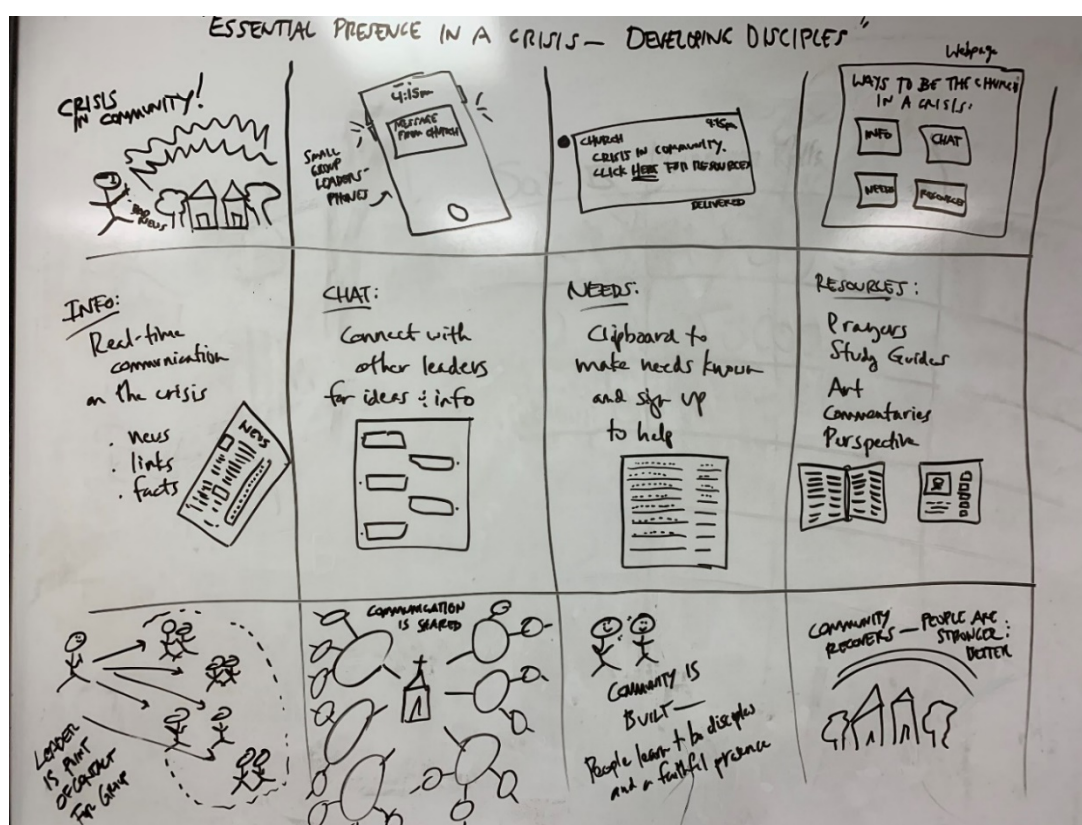 "ESSENTIAL PRESENCE IN A CRISIS — DEVELOPING DISCIPLES"
CRISIS
IN COMMUNITY!
BAD
NEWS
4:15pm
MESSAGE
FROM CHURCH
SMALL
GROUP
LEADERS'
PHONES
CHURCH
4:15pm
CRISIS IN COMMUNITY.
CLICK HERE FOR RESOURCES
DELIVERED
Webpage
WAYS TO BE THE CHURCH
IN A CRISIS:
INFO
CHAT
NEEDS
RESOURCES
INFO:
Real-time
communication
on the crisis
. news
. links
. facts
NEWS
CHAT:
Connect with
other leaders
for ideas & info
NEEDS:
Clipboard to
make needs known
and sign up
to help
RESOURCES:
Prayers
Study Guides
Art
Commentaries
Perspective
LEADER
IS POINT
OF CONTACT
FOR GROUP
COMMUNICATION
IS SHARED
COMMUNITY IS
BUILT —
People learn to be disciples
and a faithful presence
COMMUNITY
RECOVERS — PEOPLE ARE
STRONGER &
BETTER